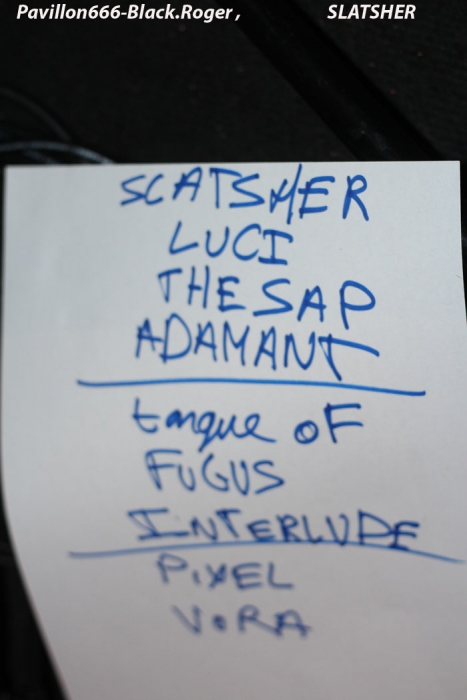 Pavillon666-Black.Roger , SLATSHER
SCATSHER
LUCI
THE SAP
ADAMANT
tongue OF
FUGUS
INTERLUDE
PIXEL
VORA